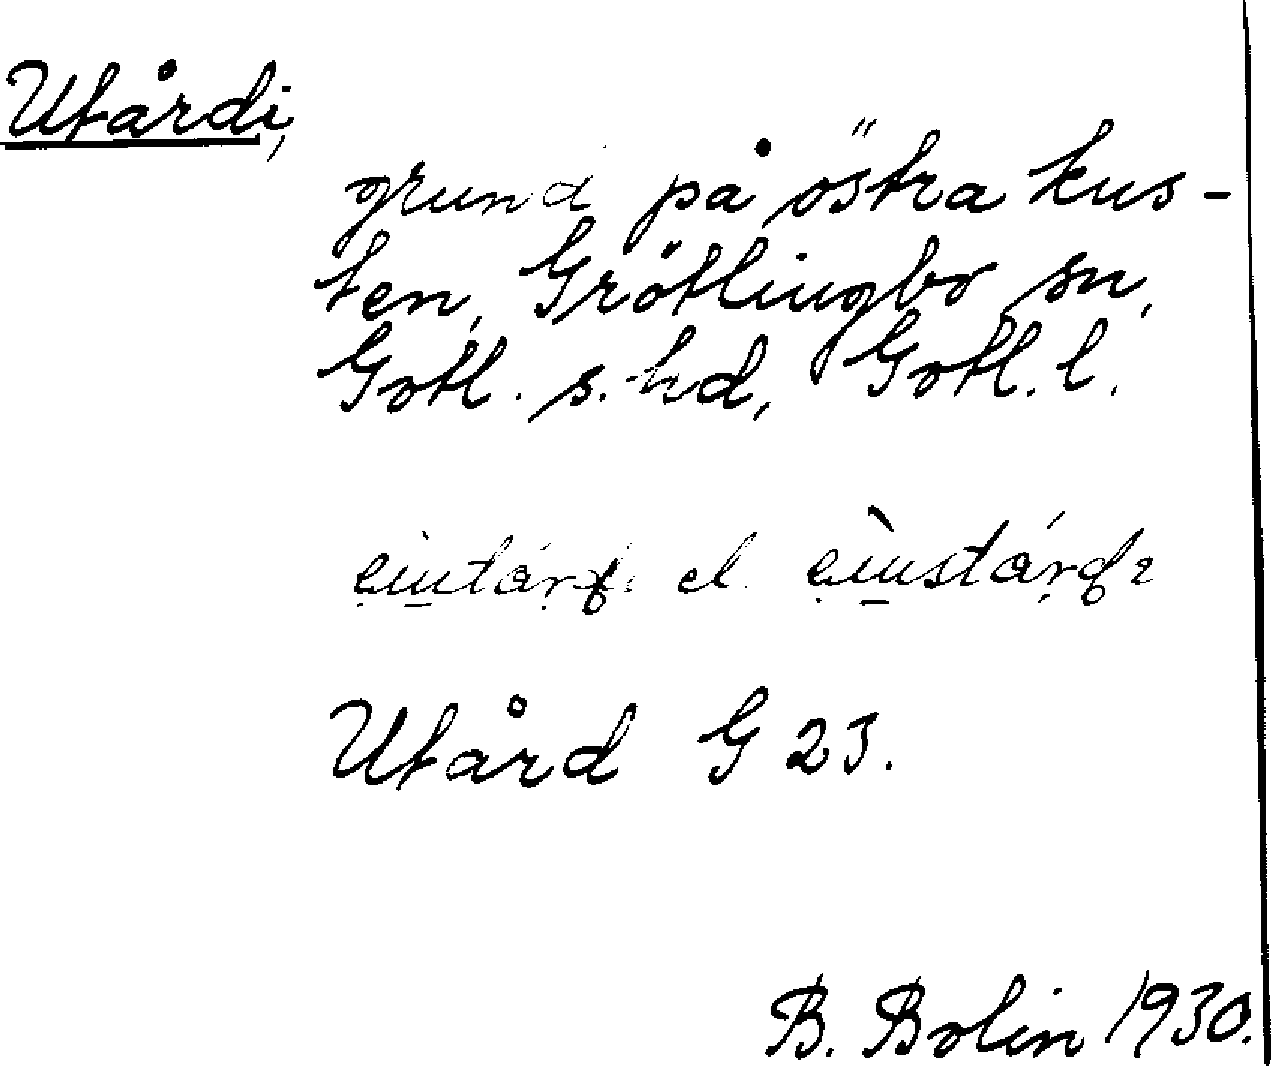 Utårdi,
grund på östra kus-
ten, Grötlingbo sn,
Gotl. s. hd, Gotl. l.
el.
Utård G 23.
B. Bolin 1930.